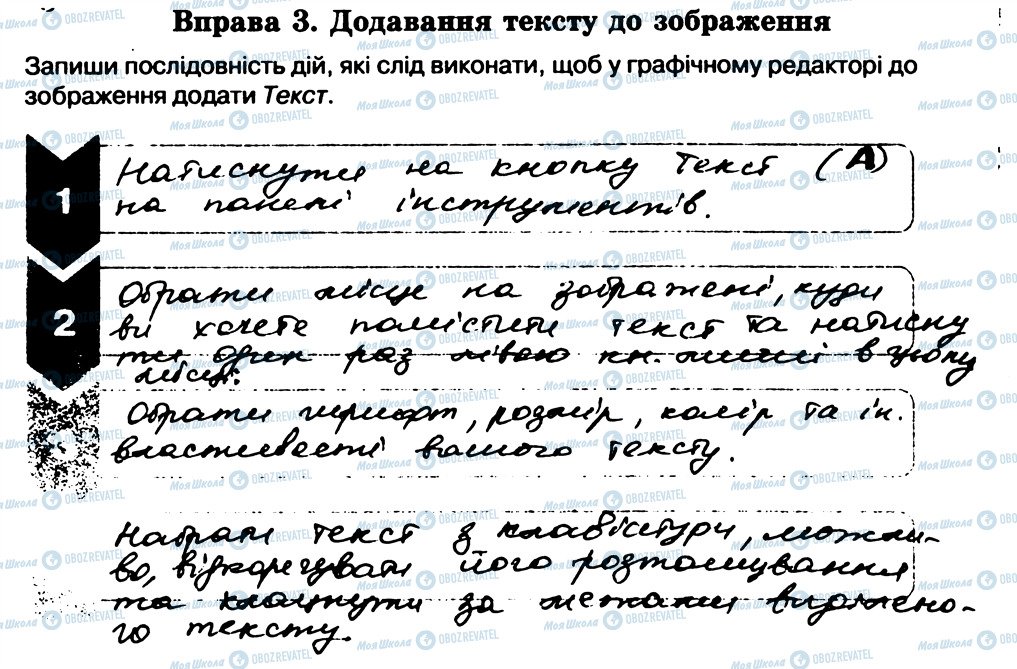 Вправа 3. Додавання тексту до зображення
Запиши послідовність дій, які слід виконати, щоб у графічному редакторі до
зображення додати Текст.
1
Натиснути на кнопку Текст (А)
на панелі інструментів.
2
Обрати місце на зображені, куди
ви хочете помістити текст та натисну
ти один раз лівою кн. миші в цьому
місці.
Обрати шрифт, розмір, колір та ін.
властивості вашого тексту.
Набрати текст з клавіатури, можли-
во, відкорегувати його розташування
та клацнути за межами виділено-
го тексту.